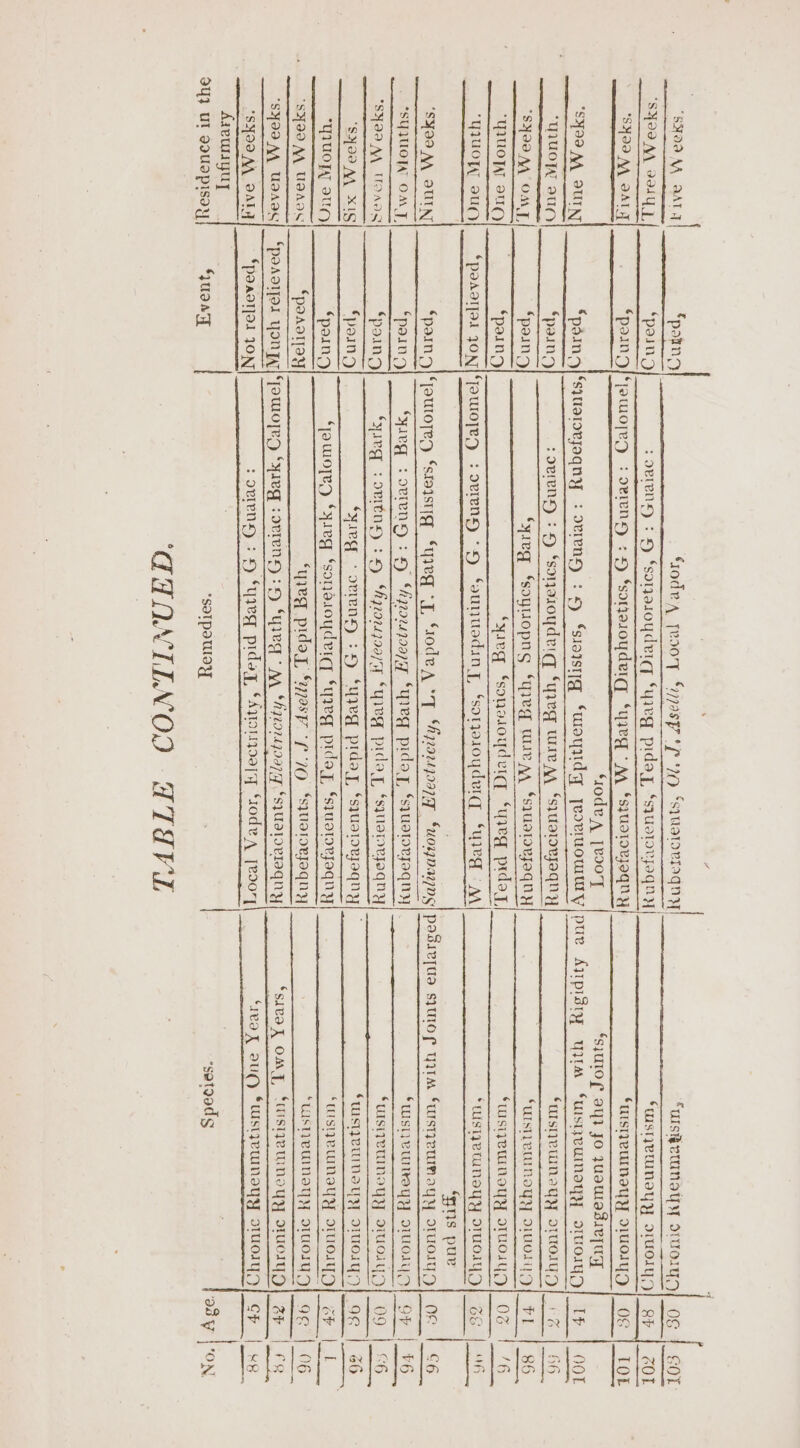 TABLE CONTINUED.
No. Age. Species. Remedies. Event, Residence in the
Infirmary
88 45 Chronic Rheumatism, One Year, Local Vapor, Electricity, Tepid Bath, G: Guaiac: Not relieved, Five Weeks.
89 42 Chronic Rheumatism, Two Years, Rubefacients, Electricity, W. Bath, G: Guaiac: Bark, Calomel, Much relieved, Seven Weeks.
90 56 Chronic Rheumatism, Rubefacients, Ol. J. Aselli, Tepid Bath, Relieved, Seven Weeks.
42 Chronic Rheumatism, Rubefacients, Tepid Bath, Diaphoretics, Bark, Calomel, Cured, One Month.
92 56 Chronic Rheumatism, Rubefacients, Tepid Bath, G: Guaiac. Bark, Cured, Six Weeks.
93 60 Chronic Rheumatism, Rubefacients, Tepid Bath, Electricity, G: Guaiac: Bark, Cured, Seven Weeks.
94 46 Chronic Rheumatism, Rubefacients, Tepid Bath, Electricity, G: Guaiac: Bark, Cured, Two Months.
95 50 Chronic Rheumatism, with Joints enlarged Salivation, Electricity, L. Vapor, T. Bath, Blisters, Calomel, Cured, Nine Weeks.
and stiff,
96 32 Chronic Rheumatism, W. Bath, Diaphoretics, Turpentine, G. Guaiac: Calomel, Not relieved, One Month.
97 20 Chronic Rheumatism, Tepid Bath, Diaphoretics, Bark, Cured, One Month.
98 14 Chronic Rheumatism, Rubefacients, Warm Bath, Sudorifics, Bark, Cured, Two Weeks.
99 Chronic Rheumatism, Rubefacients, Warm Bath, Diaphoretics, G: Guaiac: Cured, One Month.
100 41 Chronic Rheumatism, with Rigidity and Ammoniacal Epithem, Blisters, G: Guaiac: Rubefacients, Cured, Nine Weeks.
Enlargement of the Joints, Local Vapor,
101 50 Chronic Rheumatism, Rubefacients, W. Bath, Diaphoretics, G: Guaiac: Calomel, Cured, Five Weeks.
102 48 Chronic Rheumatism, Rubefacients, Tepid Bath, Diaphoretics, G: Guaiac: Cured, Three Weeks.
103 50 Chronic Rheumatism, Rubefacients, Ol. J. Aselli, Local Vapor, Cured, Five Weeks.